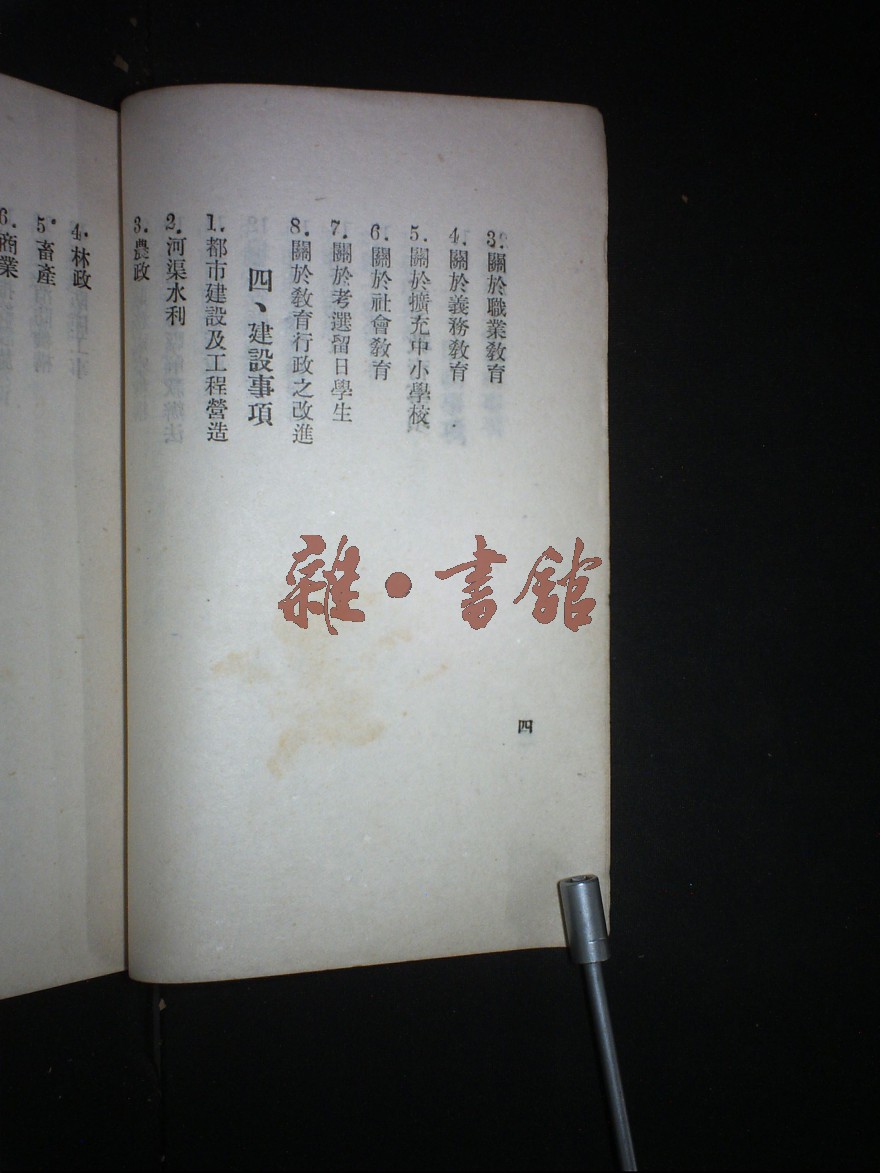 3. 關於職業敎育
4. 關於義務敎育
5. 關於擴充中小學校
6. 關於社會敎育
7. 關於考選留日學生
8. 關於敎育行政之改進
四、建設事項
1. 都市建設及工程營造
2. 河渠水利
3. 農政
四
4. 林政
5. 畜產
6. 商業
雜·書館